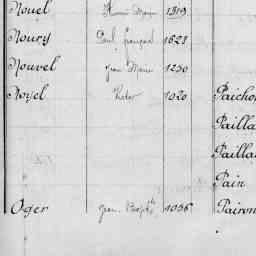 Nouel 1319
Noury Paul 1628
Nouvel Jean Marie 1230
Noyel Victor 1020 Paichon
Pailla
Pailla
Pain
Oger Jean Bapt.te 1036 Pairon